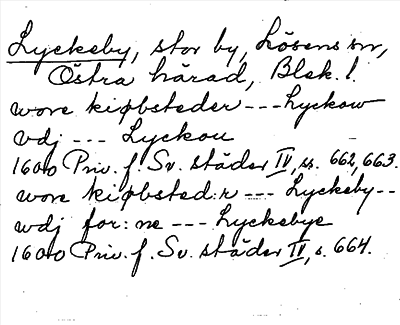 Lyckeby, stor by, Lösens sn,
Östra härad, Blek. l.
wore kiøbsteder --- Lyckow
vdj --- Lyckou
1600 Priv. f. Sv. städer IV, ss. 662, 663.
wore kiøbsted:r --- Lyckeby --
wdj for:ne --- Lyckebye
1600 Priv. f. Sv. städer IV, s. 664.